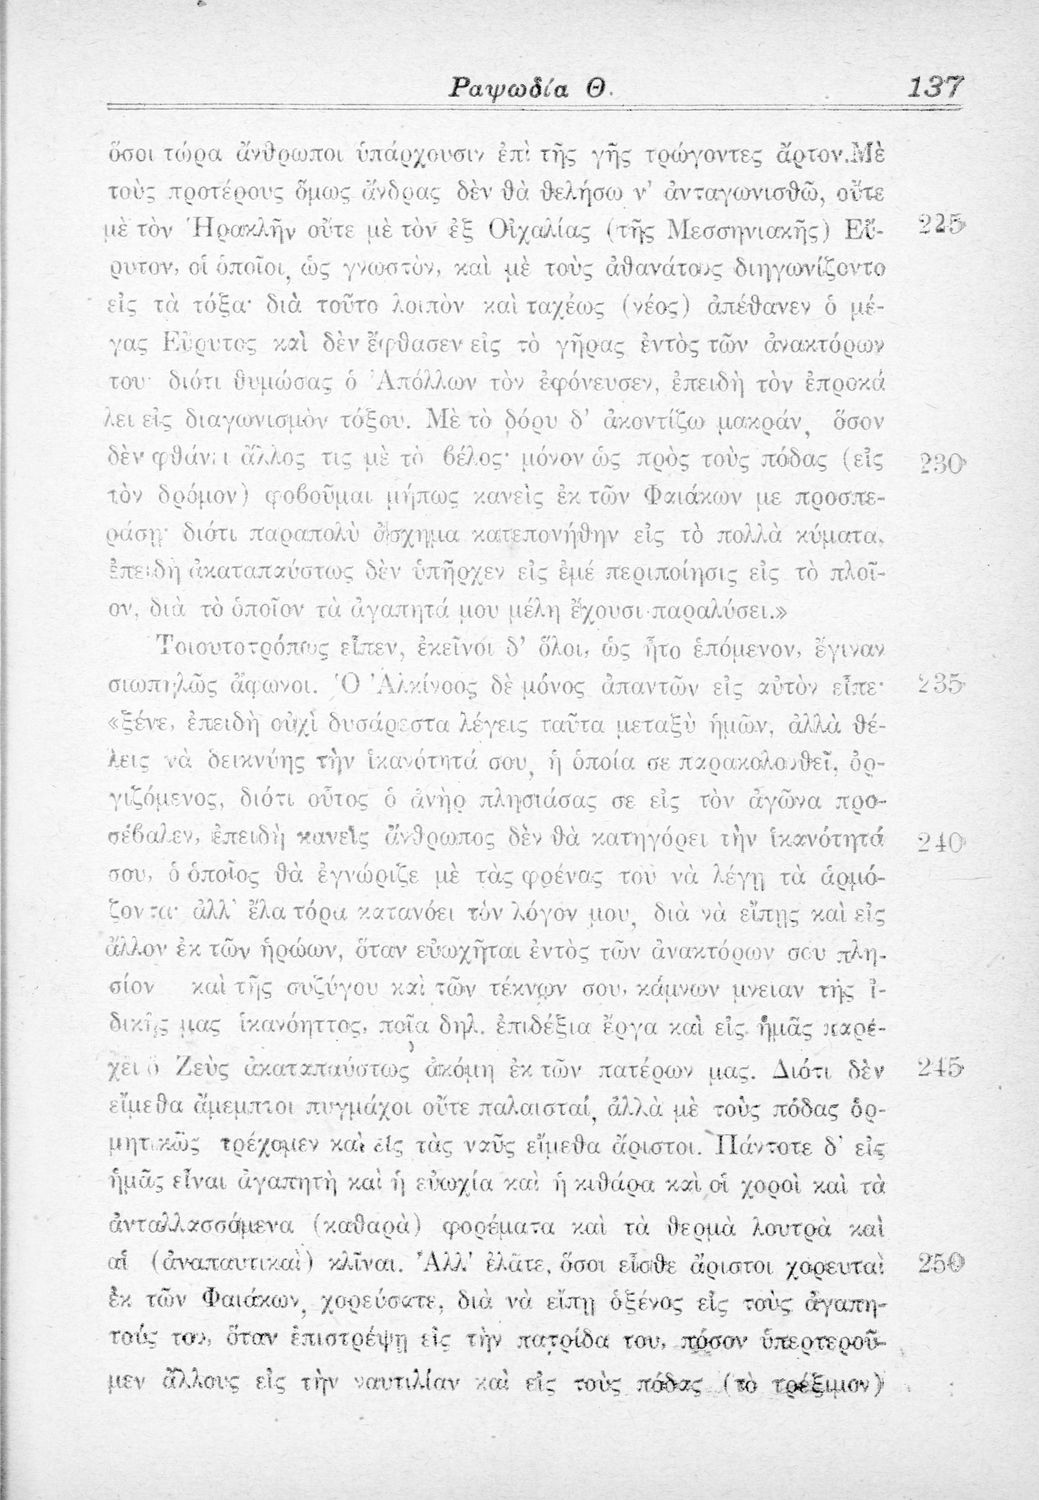 Ραψωδία Θ. 137
ὅσοι τώρα ἄνθρωποι ὑπάρχουσιν ἐπὶ τῆς γῆς τρώγοντες ἄρτον.Μὲ
τοὺς προτέρους ὅμως ἄνδρας δὲν θὰ θελήσω ν' ἀνταγωνισθῶ, οὔτε
μὲ τὸν Ἡρακλῆν οὔτε μὲ τὸν ἐξ Οἰχαλίας (τῆς Μεσσηνιακῆς) Εὔ- 225
ρυτον, οἱ ὁποῖοι, ὡς γνωστὸν, καὶ μὲ τοὺς ἀθανάτους διηγωνίζοντο
εἰς τὰ τόξα· διὰ τοῦτο λοιπὸν καὶ ταχέως (νέος) ἀπέθανεν ὁ μέ-
γας Εὔρυτος καὶ δὲν ἔφθασεν εἰς τὸ γῆρας ἐντὸς τῶν ἀνακτόρων
του· διότι θυμώσας ὁ Ἀπόλλων τὸν ἐφόνευσεν, ἐπειδὴ τὸν ἐπροκά
λει εἰς διαγωνισμὸν τόξου. Μὲ τὸ δόρυ δ' ἀκοντίζω μακράν, ὅσον
δὲν φθάνει ἄλλος τις μὲ τὸ βέλος· μόνον ὡς πρὸς τοὺς πόδας (εἰς 230
τὸν δρόμον) φοβοῦμαι μήπως κανεὶς ἐκ τῶν Φαιάκων με προσπε-
ράσῃ· διότι παραπολὺ ἄσχημα κατεπονήθην εἰς τὸ πολλὰ κύματα,
ἐπειδὴ ἀκαταπαύστως δὲν ὑπῆρχεν εἰς ἐμέ περιποίησις εἰς τὸ πλοῖ-
ον, διὰ τὸ ὁποῖον τὰ ἀγαπητά μου μέλη ἔχουσι παραλύσει.»
Τοιουτοτρόπως εἶπεν, ἐκεῖνοι δ' ὅλοι, ὡς ἦτο ἑπόμενον, ἔγιναν
σιωπηλῶς ἄφωνοι. Ὁ Ἀλκίνοος δὲ μόνος ἀπαντῶν εἰς αὐτὸν εἶπε· 235
«ξένε, ἐπειδὴ οὐχὶ δυσάρεστα λέγεις ταῦτα μεταξὺ ἡμῶν, ἀλλὰ θέ-
λεις νὰ δεικνύῃς τὴν ἱκανότητά σου, ἡ ὁποία σε παρακολουθεῖ, ὀρ-
γιζόμενος, διότι οὗτος ὁ ἀνὴρ πλησιάσας σε εἰς τὸν ἀγῶνα προ-
σέβαλεν, ἐπειδὴ κανεὶς ἄνθρωπος δὲν θὰ κατηγόρει τὴν ἱκανότητά 240
σου, ὁ ὁποῖος θὰ ἐγνώριζε μὲ τὰς φρένας του νὰ λέγῃ τὰ ἁρμό-
ζοντα· ἀλλ' ἔλα τόρα κατανόει τὸν λόγον μου, διὰ νὰ εἴπῃς καὶ εἰς
ἄλλον ἐκ τῶν ἡρώων, ὅταν εὐωχῆται ἐντὸς τῶν ἀνακτόρων σου πλη-
σίον καὶ τῆς συζύγου καὶ τῶν τέκνων σου, κάμνων μνειαν τῆς ἰ-
δικῆς μας ἱκανόηττος, ποῖα δηλ. ἐπιδέξια ἔργα καὶ εἰς ἡμᾶς παρέ-
χει ὁ Ζεὺς ἀκαταπαύστως ἀκόμη ἐκ τῶν πατέρων μας. Διότι δὲν 245
εἴμεθα ἄμεμπτοι πυγμάχοι οὔτε παλαισταί, ἀλλὰ μὲ τοὺς πόδας ὁρ-
μητικῶς τρέχομεν καὶ εἰς τὰς ναῦς εἴμεθα ἄριστοι. Πάντοτε δ' εἰς
ἡμᾶς εἶναι ἀγαπητὴ καὶ ἡ εὐωχία καὶ ἡ κιθάρα καὶ οἱ χοροὶ καὶ τὰ
ἀνταλλασσόμενα (καθαρὰ) φορέματα καὶ τὰ θερμὰ λουτρὰ καὶ
αἱ (ἀναπαυτικαὶ) κλῖναι. Ἀλλ' ἐλᾶτε, ὅσοι εἶσθε ἄριστοι χορευταὶ 250
ἐκ τῶν Φαιάκων, χορεύσατε, διὰ νὰ εἴπῃ ὁξένος εἰς τοὺς ἀγαπη-
τούς του, ὅταν ἐπιστρέψῃ εἰς τὴν πατρίδα του, πόσον ὑπερτεροῦ-
μεν ἄλλους εἰς τὴν ναυτιλίαν καὶ εἰς τοὺς πόδας (τὸ τρέξιμον)